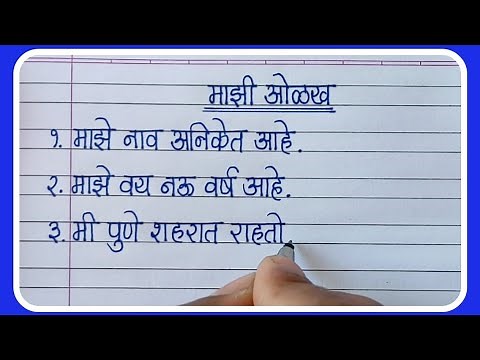 माझी ओळख
१. माझे नाव अनिकेत आहे.
२. माझे वय नऊ वर्ष आहे.
३. मी पुणे शहरात राहतो.